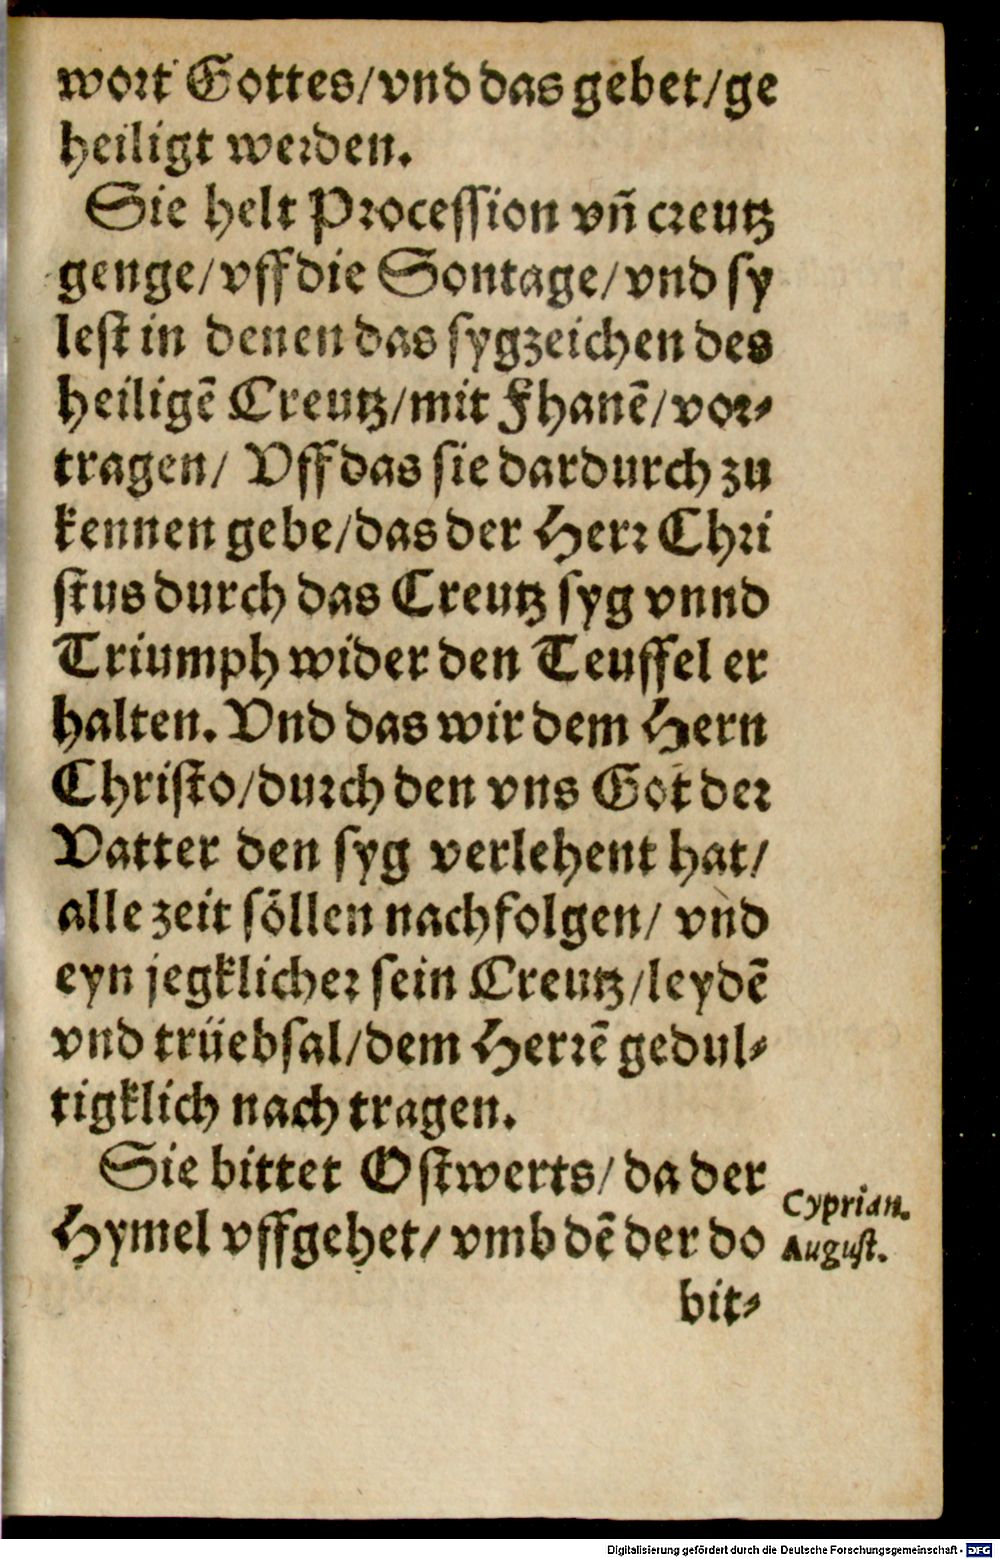 wort Gottes/vnd das gebet/ge
heiligt werden.
Sie helt Procession vn̄ creutz
genge/vff die Sontage/vnd sy
lest in denen das sygzeichen des
heiligē Creutz/mit Fhanē/vor-
tragen/ Vff das sie dardurch zu
kennen gebe/das der Herr Chri
stus durch das Creutz syg vnnd
Triumph wider den Teuffel er
halten. Vnd das wir dem Hern
Christo/durch den vns Got der
Vatter den syg verlehent hat/
alle zeit söllen nachfolgen/ vnd
eyn jegklicher sein Creutz/leydē
vnd trüebsal/dem Herrē gedul-
tigklich nach tragen.
Sie bittet Ostwerts/da der
Hymel vffgehet/vmb dē der do
Cyprian.
August.
bit-
Digitalisierung gefördert durch die Deutsche Forschungsgemeinschaft - DFG